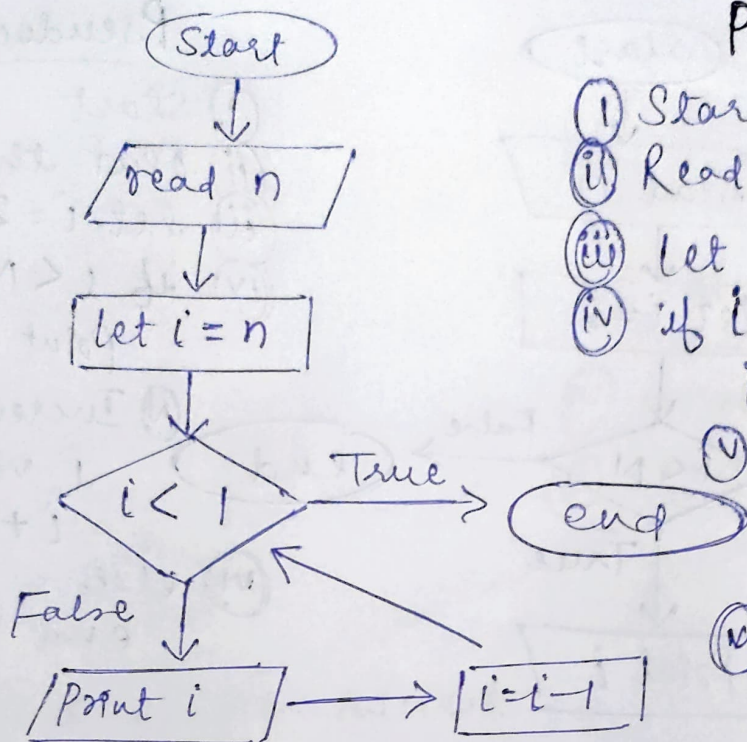 Start
read n
let i = n
i < 1
True
end
False
Print i
i=i-1
P
i Star
ii Read
iii let
iv if i
v